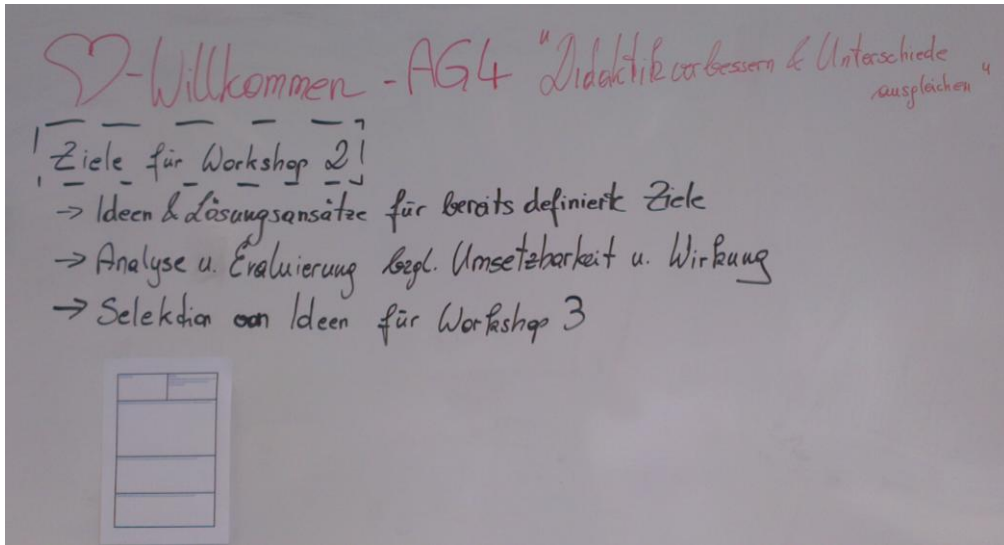 ♡-Willkommen - AG4 "Didaktik verbessern & Unterschiede
ausgleichen"
Ziele für Workshop 2
→ Ideen & Lösungsansätze für bereits definierte Ziele
→ Analyse u. Evaluierung bzgl. Umsetzbarkeit u. Wirkung
→ Selektion von Ideen für Workshop 3